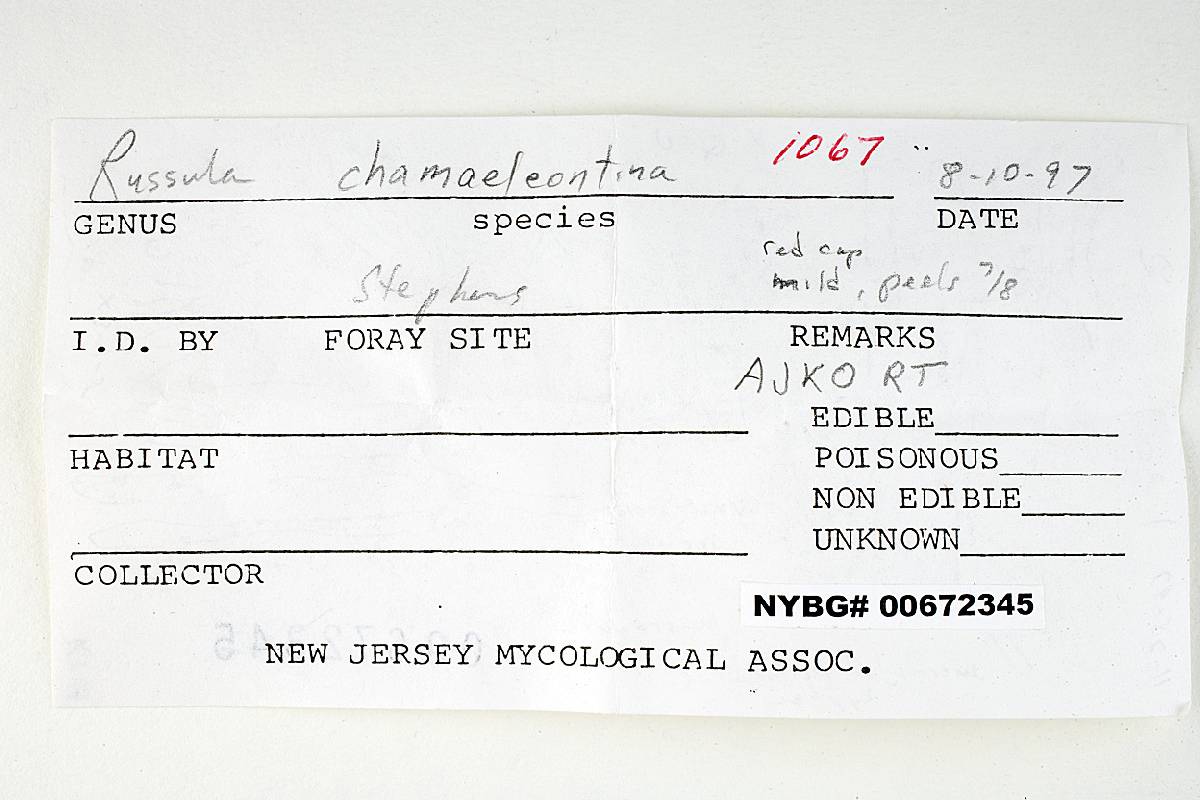 Russula chamaeleontina 1067 8-10-97
GENUS species DATE
red cap
Stephens mild, peels 7/8
I.D. BY FORAY SITE REMARKS
AJKO RT
EDIBLE
HABITAT POISONOUS
NON EDIBLE
UNKNOWN
COLLECTOR
NYBG# 00672345
NEW JERSEY MYCOLOGICAL ASSOC.